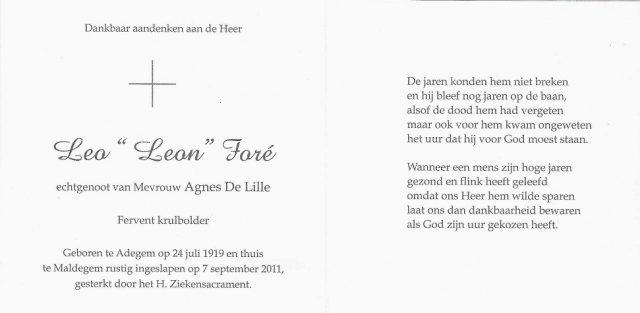 Dankbaar aandenken aan de Heer
Leo “ Leon” Foré
echtgenoot van Mevrouw Agnes De Lille
Fervent krulbolder
Geboren te Adegem op 24 juli 1919 en thuis
te Maldegem rustig ingeslapen op 7 september 2011,
gesterkt door het H. Ziekensacrament.
De jaren konden hem niet breken
en hij bleef nog jaren op de baan,
alsof de dood hem had vergeten
maar ook voor hem kwam ongeweten
het uur dat hij voor God moest staan.
Wanneer een mens zijn hoge jaren
gezond en flink heeft geleefd
omdat ons Heer hem wilde sparen
laat ons dan dankbaarheid bewaren
als God zijn uur gekozen heeft.